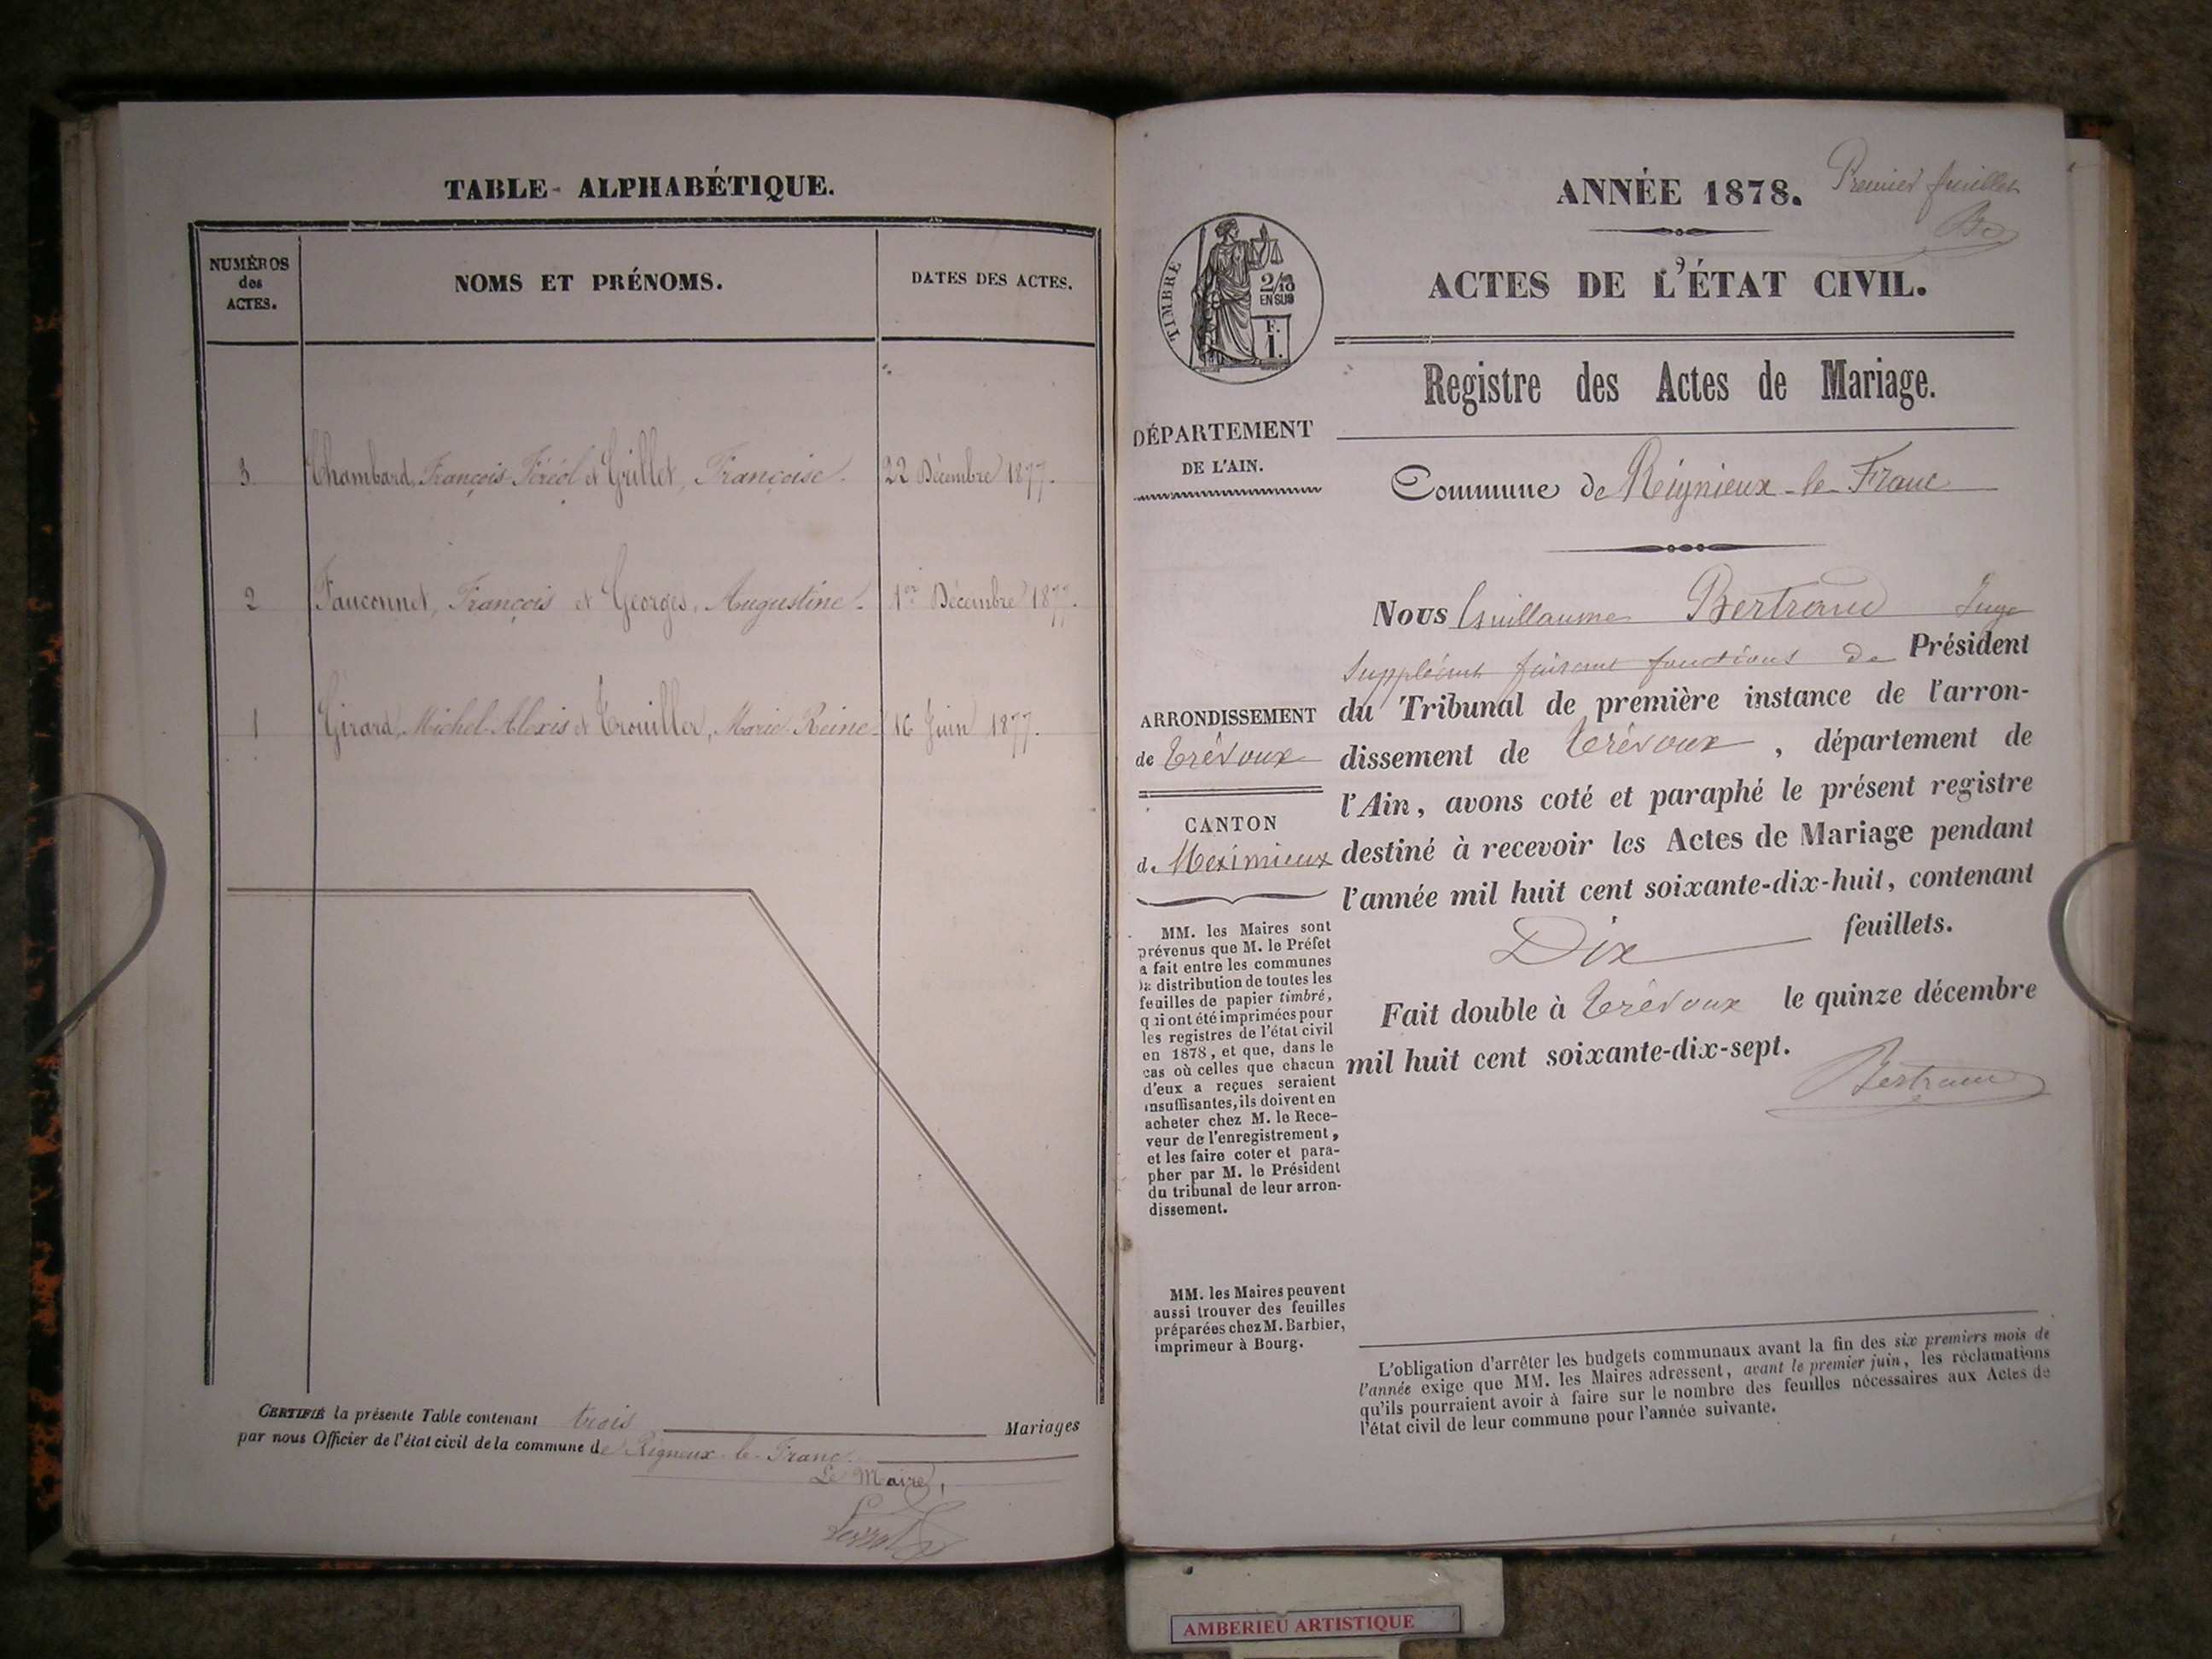 TABLE ALPHABÉTIQUE.
NUMÉROS
des
ACTES.
NOMS ET PRÉNOMS.
DATES DES ACTES.
3 Chambard, François Féréol et Grillet, Françoise. 22 Décembre 1877.
2 Fauconnet, François et Georges, Augustine. 1er Décembre 1877.
1 Girard, Michel Alexis et Trouiller, Marie Reine 16 Juin 1877.
CERTIFIÉ la présente Table contenant trois Mariages
par nous Officier de l'état civil de la commune de Rigneux-le-Franc
Le Maire,
Premier feuillet
ANNÉE 1878.
ACTES DE L'ÉTAT CIVIL.
TIMBRE
2/10
EN SUS
F.
1.
Registre des Actes de Mariage.
DÉPARTEMENT
DE L'AIN.
Commune de Reignieux-le-Franc
Nous Guillaume Bertrand Juge
Suppléant faisant fonctions de Président
du Tribunal de première instance de l'arron-
dissement de Trévoux, département de
l'Ain, avons coté et paraphé le présent registre
destiné à recevoir les Actes de Mariage pendant
l'année mil huit cent soixante-dix-huit, contenant
Dix feuillets.
Fait double à Trévoux le quinze décembre
mil huit cent soixante-dix-sept.
Bertrand
ARRONDISSEMENT
de Trévoux
CANTON
de Meximieux
MM. les Maires sont
prévenus que M. le Préfet
a fait entre les communes
la distribution de toutes les
feuilles de papier timbré,
qui ont été imprimées pour
les registres de l'état civil
en 1878, et que, dans le
cas où celles que chacun
d'eux a reçues seraient
insuffisantes, ils doivent en
acheter chez M. le Rece-
veur de l'enregistrement,
et les faire coter et para-
pher par M. le Président
du tribunal de leur arron-
dissement.
MM. les Maires peuvent
aussi trouver des feuilles
préparées chez M. Barbier,
imprimeur à Bourg.
L'obligation d'arrêter les budgets communaux avant la fin des six premiers mois de
l'année exige que MM. les Maires adressent, avant le premier juin, les réclamations
qu'ils pourraient avoir à faire sur le nombre des feuilles nécessaires aux Actes de
l'état civil de leur commune pour l'année suivante.
AMBERIEU ARTISTIQUE